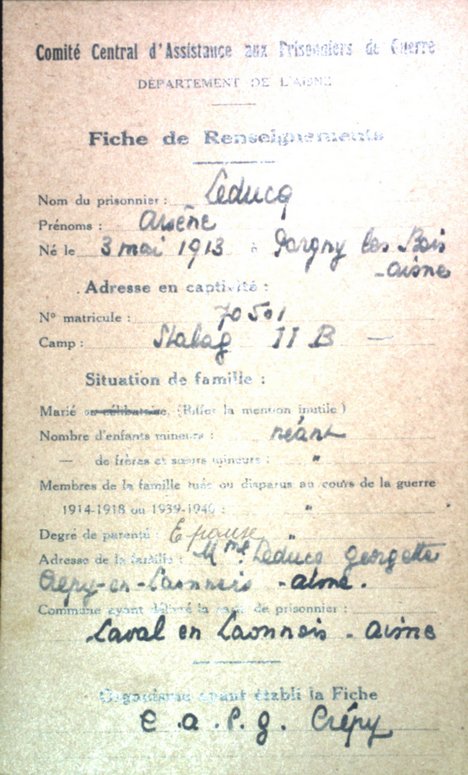 Comité Central d'Assistance aux Prisonniers de Guerre
DÉPARTEMENT DE L'AISNE
Fiche de Renseignements
Nom du prisonnier : Leducq
Prénoms : Arsène
Né le 3 mai 1913 à Pargny les Bois
- Aisne
Adresse en captivité :
N° matricule : 70501
Camp : Stalag II B —
Situation de famille :
Marié ou célibataire, (Biffer la mention inutile)
Nombre d'enfants mineurs : néant
— de frères et sœurs mineurs : "
Membres de la famille tués ou disparus au cours de la guerre
1914-1918 ou 1939-1940 : "
Degré de parenté Epouse
Adresse de la famille : Mme Leducq Georgette
Crépy-en-Laonnois - Aisne.
Commune ayant délivré la carte de prisonnier :
Laval en Laonnois - Aisne
Organisme ayant établi la Fiche
C.A.P.G. Crépy